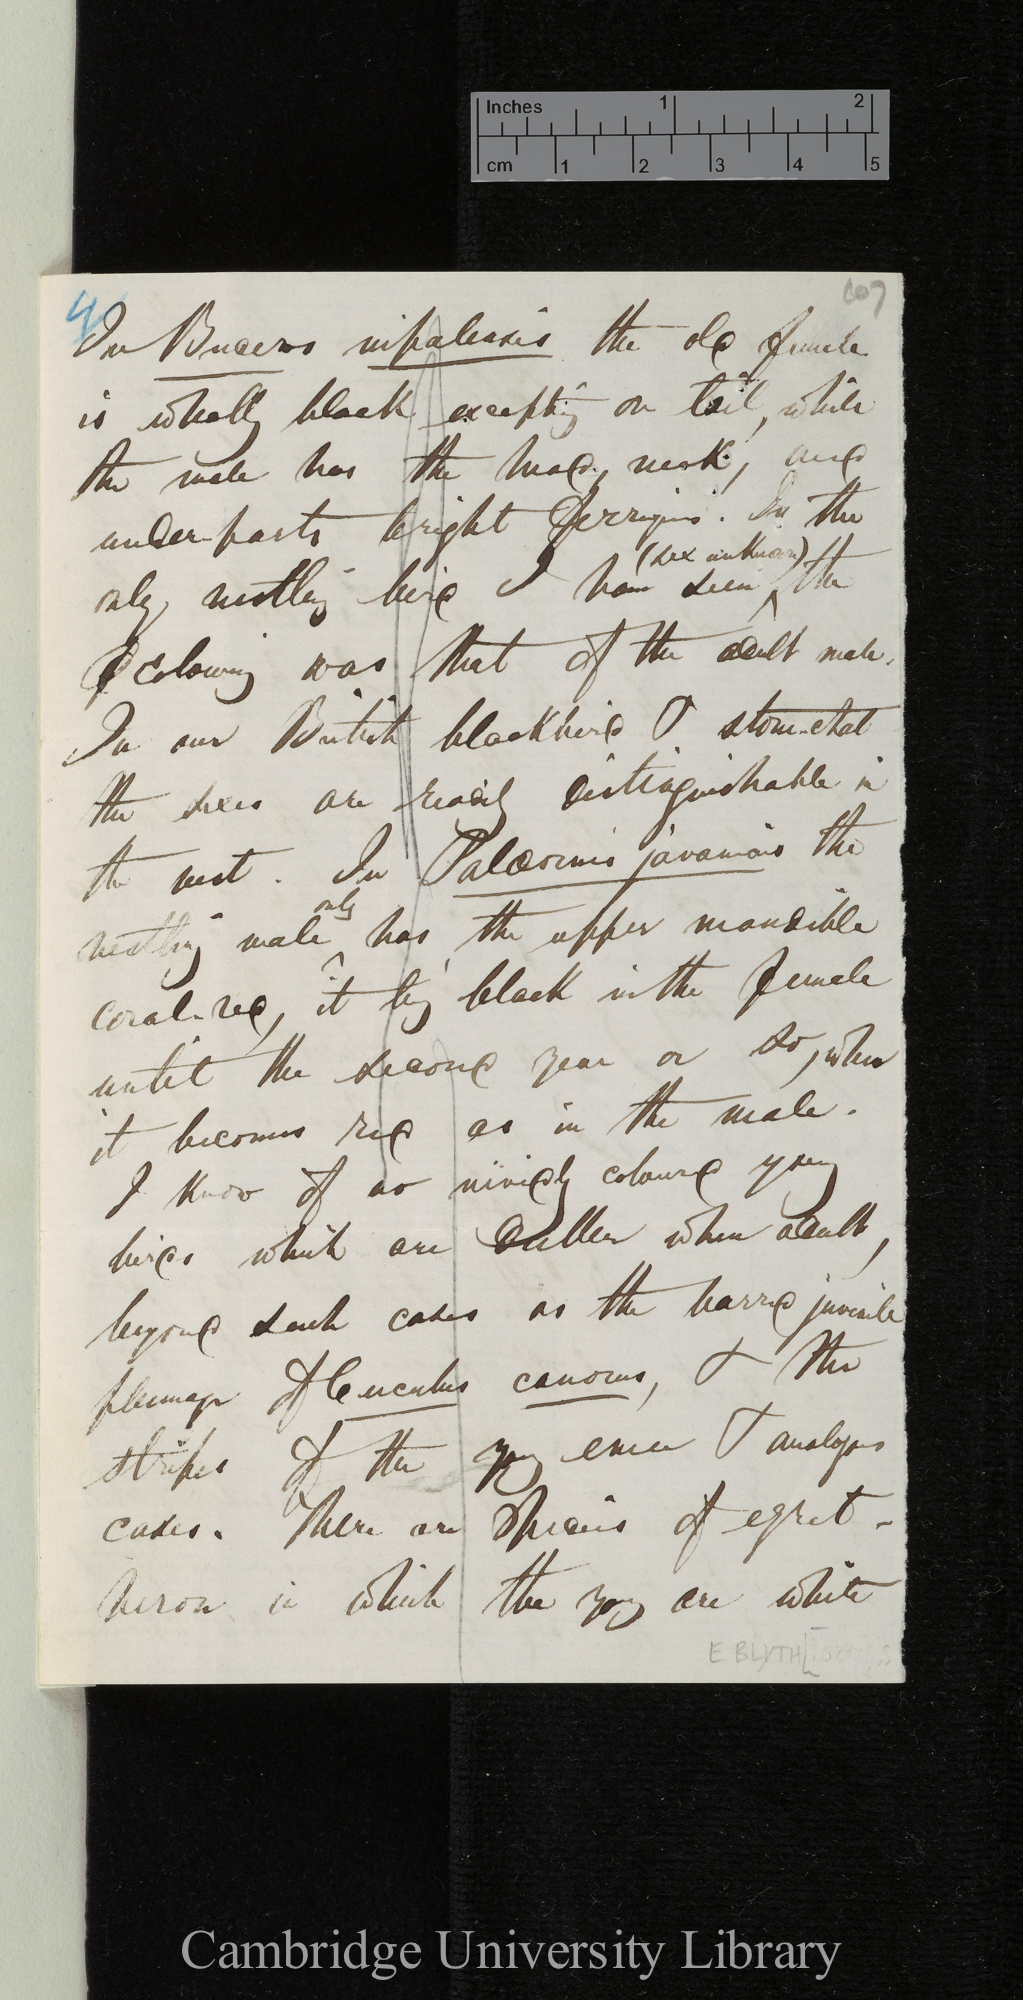 Inches 1 2
cm 1 2 3 4 5
4
107
In Buceros nipalensis the old female
is wholly black excepting on tail, while
the male has the head, neck, and
under-parts bright ferrugins. In the
(sex unknown)
only nestling bird I have seen, the
colouring was that of the adult male.
In our British blackbird & stone-chat
the sexes are readily distinguishable in
the nest. In Palæornis javanicus the
only
nestling male has the upper mandible
coral-red, it beg black in the female
until the second year or so, when
it becomes red as in the male.
I know of no vividly coloured young
birds which are duller when adult,
beyond such cases as the barred juvenile
plumage of Cuculus canorus, & the
stripes of the young emeu & analogous
cases. There are species of egret-
heron in which the young are white
E BLYTH
Cambridge University Library